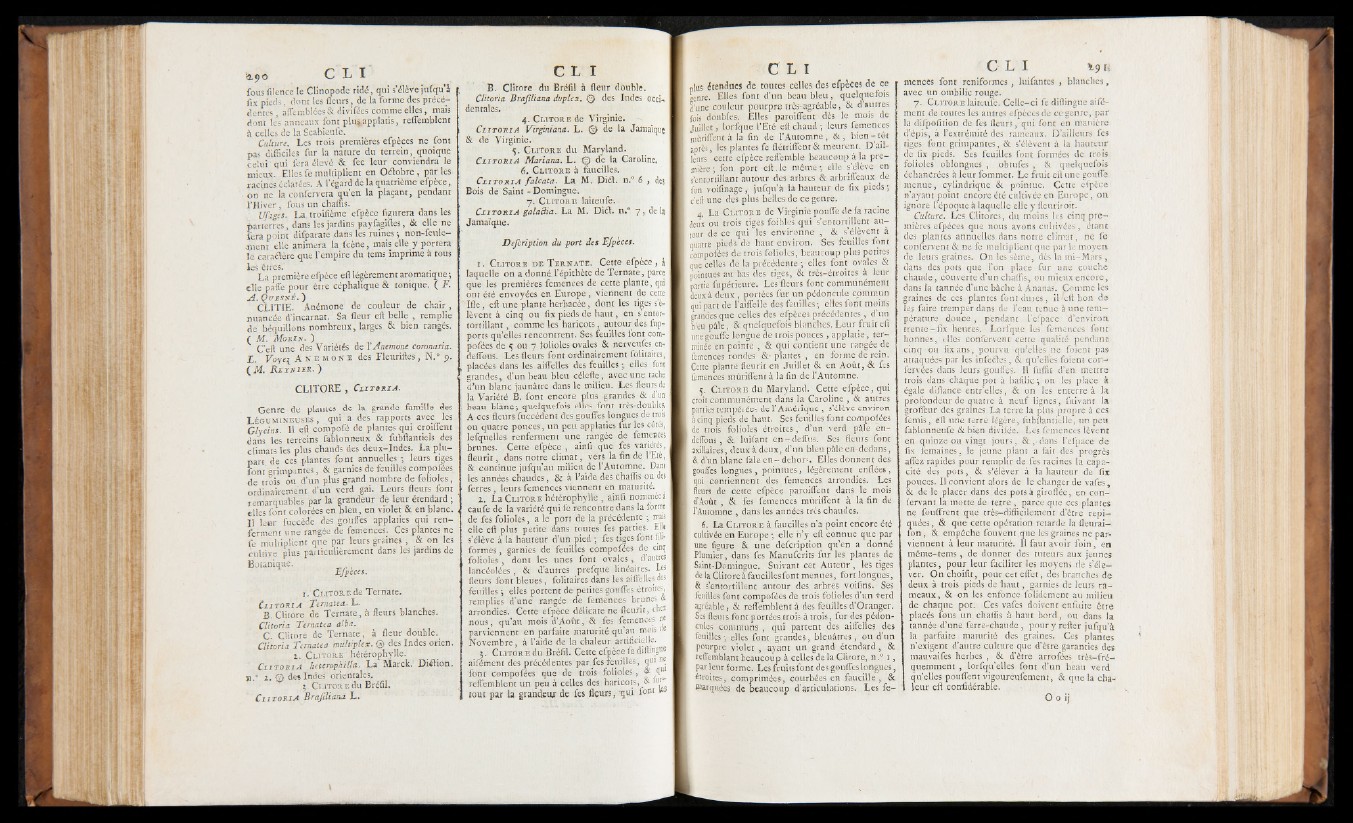 290 CLI
fous filence le Clinopode ridé, qui s'élève jufqu'à
fix pieds, dont les fleurs, de la forme des précé-
dentes, affemblées & divifées comme elles, mais
dont les anneaux font plus applatis, reffemblent
à celles de la Scabieufe.
Culture. Les trois premières efpèces ne font
pas difficiles fur la nature du terrein, quoique
celui qui fera élevé & fec leur conviendra le
mieux. Elles fe multiplient en Octobre, par les
racines éclatées. A l'égard de la quatrième efpèce,
on ne la confervera qu'en la plaçant, pendant
l'Hiver, fous un chaffis.
Ufages. La troifième efpèce figurera dans les
parterres, dans les jardins payfagiftes, & elle ne
fera point difparate dans les ruines; non-feule-
ment elle animera la fcène, mais elle y portera
le caractère que l'empire du tems imprime à tous
les êtres.
La première efpèce eft légèrement aromatique;
elle paffe pour être céphalique & tonique. ( F.
A. QUESNÉ. )
CLITIE. Anémone de couleur de chair,
nuancée d'incarnat. Sa fleur eft belle, remplie
de béquillons nombreux, larges & bien rangés.
( M. MOREN. )
C'eft une des Variétés de l'Anemone coronaria.
L. Voyez ANEMONE des Fleuriftes, N.° 9.
( M. REYNIER. )
CLITORE, CLITORIA.
Genre de plantes de la grande famille des
LÉGUMINEUSES, qui a des rapports avec les
Glycins. Il eft compofé de plantes qui croiffent
dans les terreins fablonneux & fubftantiels des
climats les plus chauds des deux-Indes. La plu-
part de ces plantes font annuelles; leurs tiges
font grimpantes, & garnies de feuilles compofées
de trois ou d'un plus grand nombre de folioles,
ordinairement d'un verd gai. Leurs fleurs font
remarquables par la grandeur de leur étendard;
elles font colorées en bleu, en violet & en blanc.
Il leur fuccède des gouffes applaties qui ren-
ferment une rangée de femences. Ces plantes ne
fe multiplient que par leurs graines, & on les
cultive plus particulièrement dans les jardins de
Botanique.
Efpèces.
1. CLITORE de Ternate.
CLITORIA Ternatea. L.
B. Clitore de Ternate, à fleurs blanches.
Clitoria Ternatea alba.
C. Clitore de Ternate, à fleur double.
Clitoria Ternatea multiplex. des Indes orien.
2. CLITORE hétérophylle.
CLITORIA heterophilla. La Marck. Diction.
n.° 2. des Indes orientales.
3. CLITORE du Bréfil.
CLITORIA Brafiliana L.
CLI
B. Clitore du Bréfil à fleur double.
Clitoria Brafiliana duplex. des Indes occi-
dentales.
4. CLITORE de Virginie.
CLITORIA Virginiana. L. de la Jamaïque
& de Virginie.
5. CLITORE du Maryland.
CLITORIA Mariana. L. de la Caroline.
6. CLITORE à faucilles.
CLITORIA falcata. La M. Dict. n.° 6, des
Bois de Saint-Domingue.
7. CLITORE laiteufe.
CLITORIA galactia. La M. Dict. n.° 7, de la
Jamaïque.
Defcription du port des Efpèces.
1. CLITORE DE TERNATE. Cette efpèce, à
laquelle on a donné l'épithète de Ternate, parce
que les premières femences de cette plante, qui
ont été envoyées en Europe, viennent de cette
Ifle, eft une plante herbacée, dont les tiges s'é-
lèvent à cinq ou fix pieds de haut, en s'entor-
tortillant, comme les haricots, autour des fup-
ports qu'elles rencontrent. Ses feuilles font com-
pofées de 5 ou 7 folioles ovales & nerveufes en-
deffous. Les fleurs font ordinairement folitaires,
placées dans les aiffelles des feuilles; elles font
grandes, d'un beau bleu célefte, avec une tache
d'un blanc jaunâtre dans le milieu. Les fleurs de
la Variété B. font encore plus grandes & d'un
beau blanc; quelquefois elles font très-doubles.
A ces fleurs fuccèdent des gouffes longues de trois
ou quatre pouces, un peu applaties fur les côtés,
lefquelles renferment une rangée de femences
brunes. Cette efpèce, ainfi que fes variétés,
fleurit, dans notre climat, vers la fin de l'Été,
& continue jufqu'au milieu de l'Automne. Dans
les années chaudes, & à l'aide des chaffis ou des
ferres, leurs femences viennent en maturité.
2. La CLITORE hétérophylle, ainfi nommée à
caufe de la variété qui fe rencontre dans la forme
de fes folioles, a le port de la précédente; mais
elle eft plus petite dans toutes fes parties. Elle
s'élève à la hauteur d'un pied; fes tiges font fili-
formes, garnies de feuilles compofées de cinq
folioles, dont les unes font ovales, d'autres
lancéolées, & d'autres prefque linéaires. Les
fleurs font bleues, folitaires dans les aiffelles des
feuilles; elles portent de petites gouffes étroites,
remplies d'une rangée de femences brunes &
arrondies. Cette efpèce délicate ne fleurit, chez
nous, qu'au mois d'Août, & fes femences ne
parviennent en parfaite maturité qu'au mois de
Novembre, à l'aide de la chaleur artificielle.
3. CLITORE du Bréfil. Cette efpèce fe diftingue
aifément des précédentes par fes feuilles, qui ne
font compofées que de trois folioles, & qui
reffemblent un peu à celles des haricots, & fur-
tout par la grandeur de fes fleurs, qui font les
CLI
plus étendues de toutes celles des efpèces de ce
genre. Elles font d'un beau bleu, quelquefois
d'une couleur pourpre très-agréable, & d'autres
fois doubles. Elles paroiffent dès le mois de
Juillet, lorfque l'Été eft chaud; leurs femences
mûriffent à la fin de l'Automne, &, bien-tôt
après, les plantes fe flétriffent & meurent. D'ail-
leurs cette efpèce reffemble beaucoup à la pre-
mière; fon port eft le même; elle s'élève en
s'entortillant autour des arbres & arbriffeaux de
fon voifinage, jufqu'à la hauteur de fix pieds;
c'eft une des plus belles de ce genre.
4. La CLITORE de Virginie pouffe de fa racine
deux ou trois tiges foibles qui s'entortillent au-
tour de ce qui les environne, & s'élèvent à
quatre pieds de haut environ. Ses feuilles font
compofées de trois folioles, beaucoup plus petites
que celles de la précédente; elles font ovales &
pointues au bas des tiges, & très-étroites à leur
partie fupérieure. Les fleurs font communément
deux à deux, portées fur un pédoncule commun
qui part de l'aiffelle des feuilles; elles font moins
grandes que celles des efpèces précédentes, d'un
bleu pâle, & quelquefois blanches. Leur fruit eft
une gouffe longue de trois pouces, applatie, ter-
minée en pointe, & qui contient une rangée de
femences rondes & plattes, en forme de rein.
Cette plante fleurit en Juillet & en Août, & fes
femences mûriffent à la fin de l'Automne.
5. CLITORE du Maryland. Cette efpèce, qui
croît communément dans la Caroline, & autres
parties tempérées de l'Amérique, s'élève environ
à cinq pieds de haut. Ses feuilles font compofées
de trois folioles étroites, d'un verd pâle en-
deffous, & luifant en-deffus. Ses fleurs font
axillaires, deux à deux, d'un bleu pâle en dedans,
& d'un blanc fale en-dehors. Elles donnent des
gouffes longues, pointues, légèrement enflées,
qui contiennent des femences arrondies. Les
fleurs de cette efpèce paroiffent dans le mois
d'Août, & fes femences mûriffent à la fin de
l'Automne, dans les années très-chaudes.
6. La CLITORE à faucilles n'a point encore été
cultivée en Europe; elle n'y eft connue que par
une figure & une defcription qu'en a donné
Plumier, dans fes Manufcrits fur les plantes de
Saint-Domingue. Suivant cet Auteur, les tiges
de la Clitore à faucilles font menues, fort longues,
& s'entortillent autour des arbres voifins. Ses
feuilles font compofées de trois folioles d'un verd
agréable, & reffemblent à des feuilles d'Oranger.
Ses fleurs font portées trois à trois, fur des pédon-
cules communs, qui partent des aiffelles des
feuilles; elles font grandes, bleuâtres, ou d'un
pourpre violet, ayant un grand étendard, &
reffemblant beaucoup à celles de la Clitore, n.° 1,
par leur forme. Les fruits font des gouffes longues,
étroites, comprimées, courbées en faucille, &
marquées de beaucoup d'articulations. Les fe-
CLI 291
mences font reniformes, luifantes, blanches,
avec un ombilic rouge.
7. CLITORE laiteufe. Celle-ci fe diftingue aifé-
ment de toutes les autres efpèces de ce genre, par
la difpofition de fes fleurs, qui font en manière
d'épis, à l'extrémité des rameaux. D'ailleurs fes
tiges font grimpantes, & s'élèvent à la hauteur
de fix pieds. Ses feuilles font formées de trois
folioles oblongues, obtufes, & quelquefois
échancrées à leur fommet. Le fruit eft une gouffe
menue, cylindrique & pointue. Cette efpèce
n'ayant point encore été cultivée en Europe, on
ignore l'époque à laquelle elle y fleuriroit.
Culture. Les Clitores, du moins les cinq pre-
mières efpèces que nous avons cultivées, étant
des plantes annuelles dans notre climat, ne fe
confervent & ne fe multiplient que par le moyen
de leurs graines. On les sème, dès la mi-Mars,
dans des pots que l'on place fur une couche
chaude, couverte d'un chaffis, ou mieux encore,
dans la tannée d'une bâche à Ananas. Comme les
graines de ces plantes font dures, il eft bon de
les faire tremper dans de l'eau tenue à une tem-
pérature douce, pendant l'efpace d'environ
trente-fix heures. Lorfque les femences font
bonnes, elles confervent cette qualité pendant
cinq ou fix ans, pourvu qu'elles ne foient pas
attaquées par les infectes, & qu'elles foient con-
fervées dans leurs gouffes. Il fuffit d'en mettre
trois dans chaque pot à bafilic; on les place à
égale diftance entr'elles, & on les enterre à la
profondeur de quatre à neuf lignes, fuivant la
groffeur des graines. La terre la plus propre à ces
femis, eft une terre légère, fubftantielle, un peu
fablonneufe & bien divifée. Les femences lèvent
en quinze ou vingt jours, &, dans l'efpace de
fix femaines, le jeune plant a fait des progrès
affez rapides pour remplir de fes racines la capa-
cité des pots, & s'élever à la hauteur de fix
pouces. Il convient alors de le changer de vafes,
& de le placer dans des pots à giroflée, en con-
fervant la motte de terre, parce que ces plantes
ne fouffrent que très-difficilement d'être repi-
quées, & que cette opération retarde la fleurai-
fon, & empêche fouvent que les graines ne par-
viennent à leur maturité. Il faut avoir foin, en
même-tems, de donner des tuteurs aux jeunes
plantes, pour leur faciliter les moyens de s'éle-
ver. On choifit, pour cet effet, des branches de
deux à trois pieds de haut, garnies de leurs ra-
meaux, & on les enfonce folidement au milieu
de chaque pot. Ces vafes doivent enfuite être
placés fous un chaffis à haut bord, ou dans la
tannée d'une ferre-chaude, pour y refter jufqu'à
la parfaite maturité des graines. Ces plantes
n'exigent d'autre culture que d'être garanties des
mauvaifes herbes, & d'être arrofées très-fré-
quemment, lorfqu'elles font d'un beau verd
qu'elles pouffent vigoureufement, & que la cha-
leur eft confidérable.
O o ij